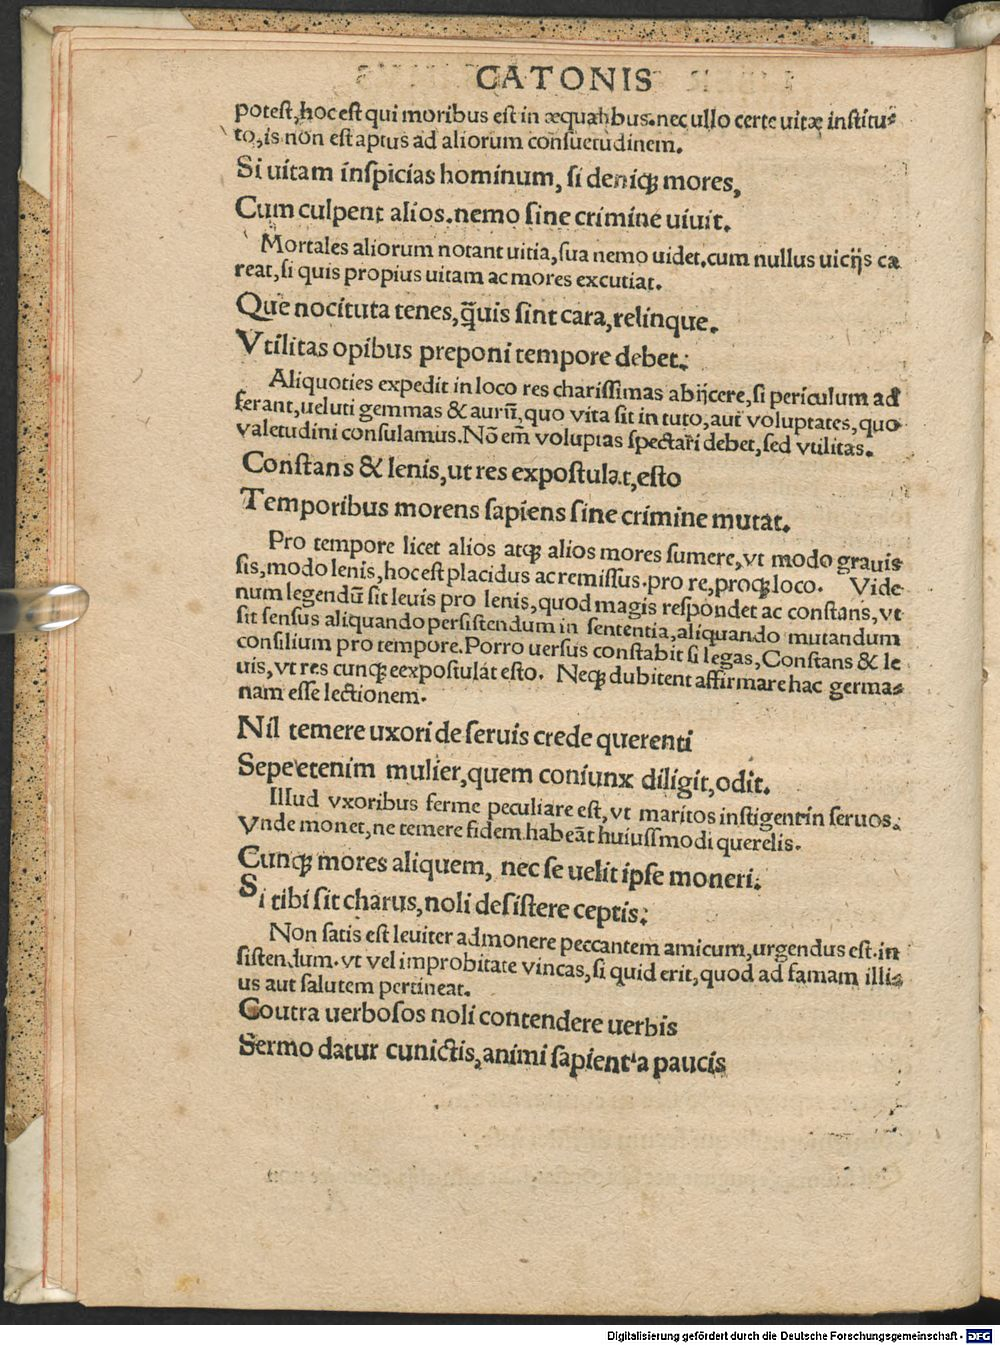 CATONIS
potest, hoc est qui moribus est in æqualibus. nec ullo certe uitæ institu-
to, is non est aptus ad aliorum consuetudinem.
Si uitam inspicias hominum, si deniqꝫ mores,
Cum culpent alios. nemo sine crimine uiuit.
Mortales aliorum notant uitia, sua nemo uidet. cum nullus uicijs ca
reat, si quis propius uitam ac mores excutiat.
Que nocituta tenes, q̃uis sint cara, relinque.
Vtilitas opibus preponi tempore debet.
Aliquoties expedit in loco res charissimas abijcere, si periculum ad
ferant, ueluti gemmas & aurũ, quo vita sit in tuto, aut voluptates, quo
valetudini consulamus. Nõ em̃ voluptas spectari debet, sed vtilitas.
Constans & lenis, ut res expostulat, esto
Temporibus morens sapiens sine crimine mutat.
Pro tempore licet alios atqꝫ alios mores sumere, vt modo grauis
sis, modo lenis, hoc est placidus ac remissus. pro re, proqꝫ loco. Vide
num legendũ sit leuis pro lenis, quod magis respondet ac constans, vt
sit sensus aliquando persistendum in sententia, aliquando mutandum
consilium pro tempore. Porro uersus constabit si legas, Constans & le
uis, vt res cunqꝫ eexpostulat esto. Neqꝫ dubitent affirmare hac germa-
nam esse lectionem.
Nil temere uxori de seruis crede querenti
Sepe etenim mulier, quem coniunx diligit, odit.
Illud vxoribus ferme peculiare est, vt maritos instigent in seruos.
Vnde monet, ne temere fidem habeãt huiussmodi querelis.
Cunqꝫ mores aliquem, nec se uelit ipse moneri.
Si tibi sit charus, noli desistere ceptis.
Non satis est leuiter admonere peccantem amicum, urgendus est. in
sistendum. vt vel improbitate vincas, si quid erit, quod ad famam illi-
us aut salutem pertineat.
Coutra uerbosos noli contendere uerbis
Sermo datur cunictis, animi sapientia paucis
Digitalisierung gefördert durch die Deutsche Forschungsgemeinschaft - DFG